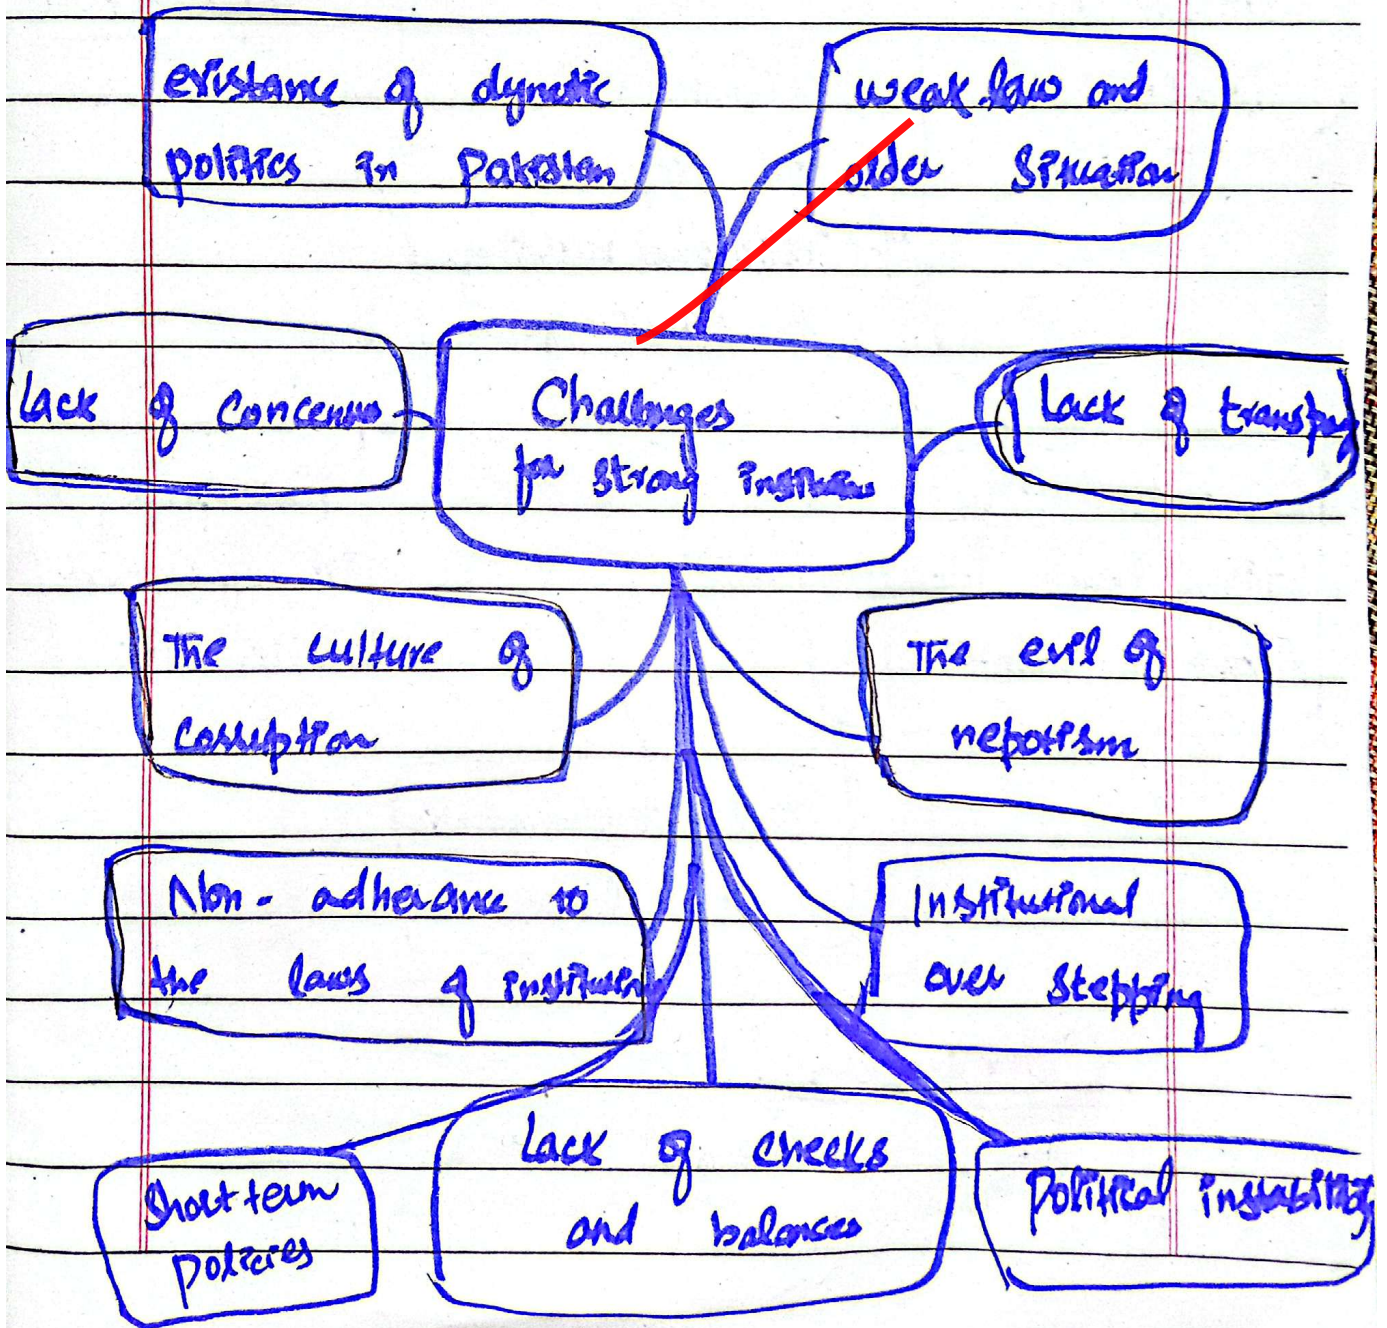 existance of dynetic
politics in Pakistan
weak law and
older Situation
Lack of Concensus
Challenges
for strong
Lack of
The culture of
Corruption
The evil of
nepotism
Non-adherance to
the laws of
Institutional
over stepping
Short term
policies
Lack of checks
and balances
Political instability